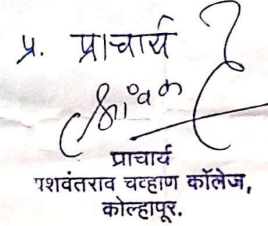 प्र. प्राचार्य
प्राचार्य
यशवंतराव चव्हाण कॉलेज,
कोल्हापूर.